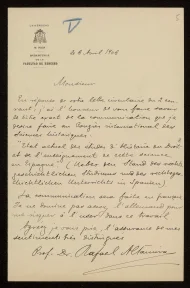 UNIVERSIDAD
DE OVIEDO
FACULTAD DE DERECHO
le 8 Avril 1908
Monsieur
En réponse de votre lettre inventaire du 2 cou-
rant, j'ai l'honneur de vous faire savoir
le titre exact de la communication que je
pense faire au Congrès international des
sciences historiques.
"État actuel des études d'Histoire du droit
et de l'enseignement de cette science
en Espagne" (Ueber den Stand der rechts-
geschichtlichen Studiums und des rechtsge-
schichtlichen Unterrichts in Spanien)
La communication sera faite en français
Je ne domine pas assez l'allemand pour
me risquer à l'user dans ce travail
Agréez je vous prie, l'assurance de mes
sentiments très distingués
Prof. Dr. Rafael Altamira